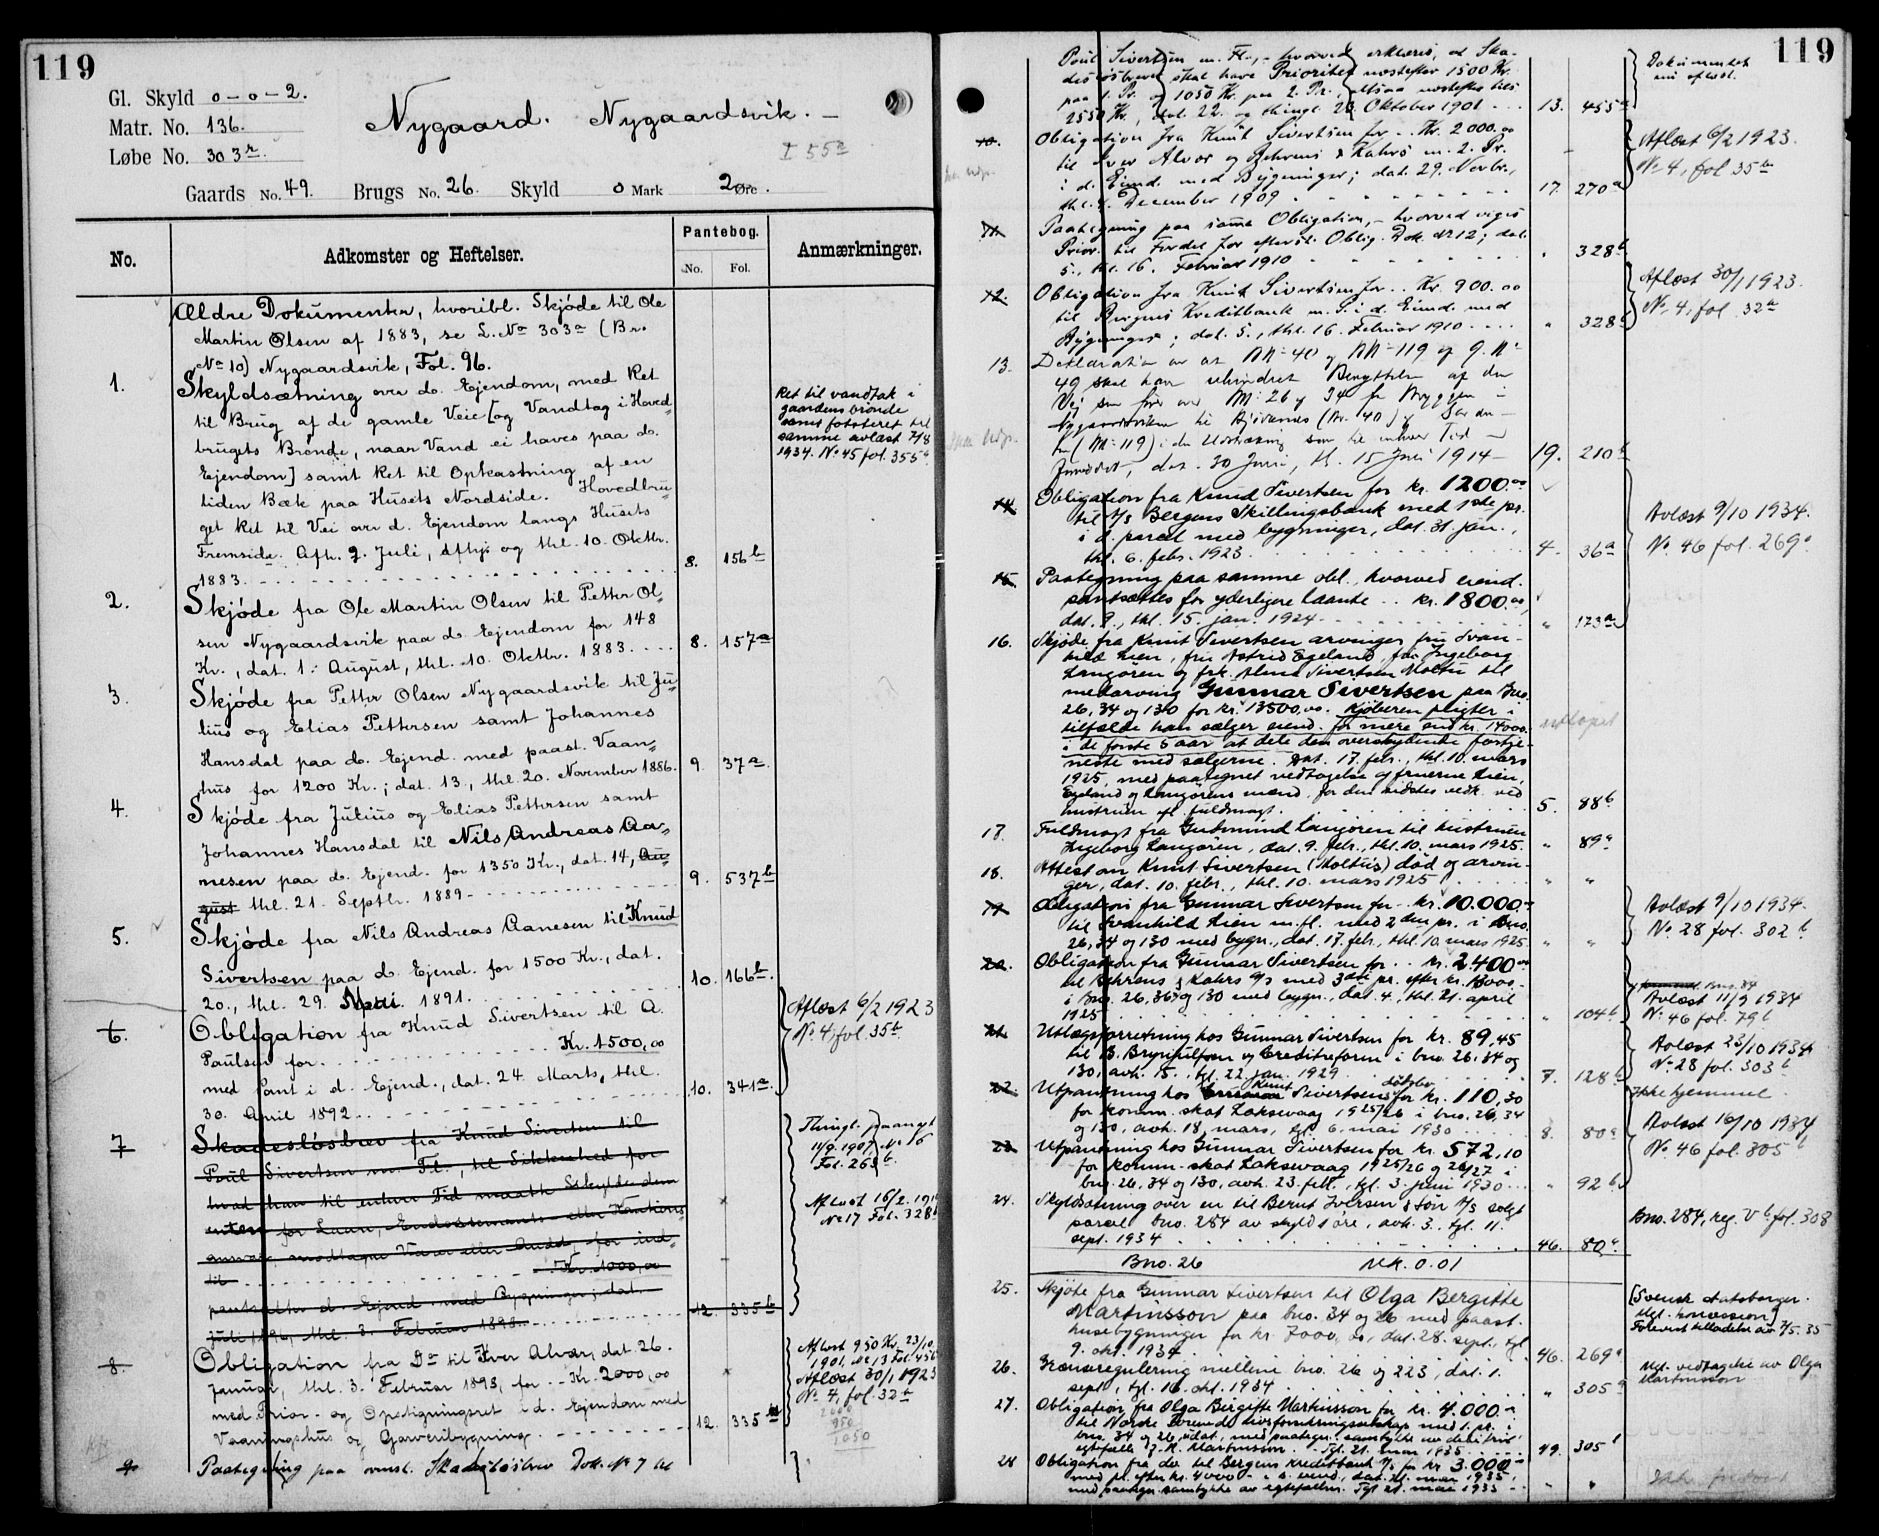 119
Gl. Skyld 0-0-2.
Matr. No. 136.
Løbe No. 303r.
Nygaard. Nygaardsvik. —
I 55a
Gaards No. 49. Brugs No. 26. Skyld 0 Mark 2 Øre.
No. Adkomster og Heftelser. Pantebog. No. Fol. Anmærkninger.
Ældre Dokumenter, hvoribl. Skjøde til Ole
Martin Olsen af 1883, se L. No 303a (Br.
No 10) Nygaardsvik, Fol. 96.
1. Skyldsætning over do. Ejendom, med Ret
til Brug af de gamle Veie [og Vandtag i Hoved-
brugets Brønde, naar Vand ei haves paa do.
Ejendom] samt Ret til Opkastning af en
liden Bæk paa Husets Nordside. Hovedbru-
get Ret til Vei over d. Ejendom langs Husets
Fremside. Afh. 2. Juli, og thl. 10. Oktbr.
1883. 8. 156b
Ret til vandtak i
gaardens brønde
samt fotsteret til
samme avlæst 7/8
1934. No 45 fol. 355a.
2. Skjøde fra Ole Martin Olsen til Petter Ol-
sen Nygaardsvik paa do. Ejendom for 148
Kr., dat. 1. August, thl. 10. Oktbr. 1883. 8. 157a
3. Skjøde fra Petter Olsen Nygaardsvik til Ju-
lius og Elias Pettersen samt Johannes
Hansdal paa do. Ejend. med paast. Vaan-
hus for 1200 Kr.; dat. 13., thl. 20. November 1886. 9. 37a.
4. Skjøde fra Julius og Elias Pettersen samt
Johannes Hansdal til Nils Andreas Aa-
nesen paa do. Ejend. for 1350 Kr., dat. 14, Au-
gust thl. 21. Septbr. 1889 9. 537b
5. Skjøde fra Nils Andreas Aanesen til Knud
Sivertsen paa do. Ejend. for 1500 Kr., dat.
20., thl. 29. Mai 1891. 10. 166b.
6. Obligation fra Knud Sivertsen til A.
Paulsen for Kr. 1500,00
med Pant i d. Ejend., dat. 24. Marts, thl.
30. April 1892. 10. 341a.
Aflæst 6/2 1923
No 4, fol. 35b.
7. Skadesløsbrev fra Knud Sivertsen til
Poul Sivertsen m. Fl., til Sikkerhed for
hvad han til enhver Tid maatte skylde dem
for Laan, Endossements- eller Kautions-
ansvar, modtagne Varer eller Andet, for ind-
til Kr. 1000,00
pantsætter d. Ejend. med Bygninger; dat.
Juli 1896, thl. 3. Februar 1898 12. 335b
Thingl. paanyt
11/9 1907, No 16
Fol. 263b.
Aflæst 16/2. 1910
No 17 Fol. 328b
8. Obligation fra Do til Iver Alvær, dat. 26.
Januar, thl. 3. Februar 1898, for Kr. 2000,00
med Prior- og Opsigningsret i d. Ejendom med
Vaaningshus og Garveribygning. 12. 335
Aflæst 950 Kr. 23/10
1901, No 13 Fol. 456
Aflæst 30/1 1923
No 4, fol. 32b
2000
950
1050
9. Paategning paa ovenst. Skadesløsbrev Dok. No 7 til
119
Poul Sivertsen m. Fl., hvorved erklæres, at Ska-
desløsbrevet skal have Prioritet næstefter 1500 Kr.
paa 1. Pr. og 1050 Kr. paa 2. Pr., altsaa næstefter tils.
2550 Kr., dat. 22. og thingl. 23. Oktober 1901 13. 455a
Dokumentet
nu aflæst.
10. Obligation fra Knut Sivertsen for Kr. 2000.00
til Iver Alvær og Behrens & Kahrs m. 2. Pr.
i d. Eiend. med Bygninger; dat. 29. Novbr.,
thl. 4. December 1909 17. 270a
Aflæst 6/2 1923.
No 4, fol 35b
11. Paategning paa samme Obligation, hvorved viges
Prior. til Fordel for efterst. Oblig. Dok. No 12; dat.
5., thl. 16. Februar 1910 " 328b
12. Obligation fra Knut Sivertsen for Kr. 900.00
til Bergens Kreditbank m. P. i d. Eiend. med
Bygninger; dat. 5., thl. 16. Februar 1910 " 328b
Aflæst 30/1 1923.
No 4, fol 32a
13. Deklaration om at No 40 og No 119 af G. No
49 skal have uhindret Benyttelse af den
Vei som fører over No 26 og 34 fra Bryggen i
Nygaardsviken til (Nr. 40) og
(No 119) i den Udstrækning som til enhver Tid
, dat. 30 Juni, th. 15 Juli 1914 19. 210b
14. Obligation fra Knud Sivertsen for kr. 1200.00
til A/S Bergens Skillingsbank med 1ste pr.
i d. parcel med bygninger, dat. 31. jan.,
thl. 6. febr. 1923 4. 36a
Avlæst 9/10 1934.
No 46 fol. 269a
15. Paategning paa samme obl., hvorved eiend.
pantsættes for yderligere laante kr. 1800.00,
dat. 9., thl. 15. jan. 1924 " 123a
16. Skjøde fra Knut Sivertsen arvinger fru Svan-
hild Lien, fru Astrid Egeland, fru Ingeborg
Langøren og frk. Alma Sivertsen Moltu til
medarving Gunnar Sivertsen paa bno.
26, 34 og 130 for kr. 13500,00. Kjøberen pligter i
tilfælde han sælger eiend. for mere end kr. 14000.
i de første 5 aar at dele den overskydende fortje-
neste med sælgerne. Dat. 17. febr., thl. 10. mars
1925, med paategnet vedtagelse af fruerne Lien,
Egeland og Langørens mænd, for den sidstes vedk. ved
hustruen efl. fuldmagt. 5. 88b
17. Fuldmagt fra Gudmund Langøren til hustruen
Ingeborg Langøren, dat. 9. febr., thl. 10. mars 1925. " 89a
18. Attest om Knut Sivertsen (Moltus) død og arvin-
ger, dat. 10. febr., thl. 10. mars 1925 " "
19. Obligation fra Gunnar Sivertsen for kr. 10.000.-
til Svanhild Lien m. fl. med 2den pr. i bno.
26, 34 og 130 med bygn., dat. 17. febr., thl. 10. mars 1925 " "
Avlæst 9/10 1934.
No 28 fol. 302b.
20. Obligation fra Gunnar Sivertsen for kr. 2400.00
til Behrens & Kahrs A/S med 3die pr. efter kr. 13000.-
i Bno. 26, 34 og 130 med bygn., dat. 4., thl. 21. april
1925 " 104b
Bno. 84
Avlæst 11/9 1934
No 46 fol. 79b
21. Utlægsforretning hos Gunnar Sivertsen for kr. 89,45
til B. Brynjulfsen og Creditreform i bno. 26, 34 og
130, avh. 15., tgl. 22. jan. 1929 7. 128b
Avlæst 23/10 1934
No 28 fol. 303b
22. Utpantning hos Knut Sivertsens dødsbo for kr. 110,30
for komm. skat Laksevaag 1925/26 i bno. 26, 34
og 130, avh. 18. mars, tgl. 6. mai 1930 8. 80a
Ikke hjemmel.
23. Utpantning hos Gunnar Sivertsen for kr. 572,10
for komm. skat Laksevaag 1925/26 og 26/27 i
bno. 26, 34 og 130, avh. 23. febr., tgl. 3. juni 1930 " 92b
Avlæst 16/10 1934
No 46 fol. 305b
24. Skyldsætning over en til Bernt Iversen & Søn A/S solgt
parcel bno. 284 av skyld 1 øre, avh. 3., tgl. 11.
sept. 1934 46. 80a.
Bno. 284, reg. Vb fol. 308
Bno. 26 Mk. 0.01
25. Skjøte fra Gunnar Sivertsen til Olga Bergitte
Martinsson paa bno. 34 og 26 med paast.
husebygninger for kr. 7000,00, dat. 28. sept., tgl.
9. okt. 1934 46. 269a
[Svensk statsborger.
Mgl. koncession]
Forevist tilladelse av 2/5. 35
26. Grænseregulering mellem bno. 26 og 223, dat. 1.
sept., tgl. 16. okt. 1934 " 305a
Mgl. vedtagelse av Olga
Martinsson
27. Obligation fra Olga Bergitte Martinsson for kr. 4.000.-
til Norske Forenede Livsforsikringsselskap med 1. pr. i
bno. 34 og 26, udat., med paategn. samtykke av
egtefælle J. K. Martinsson. Tgl. 21. mai 1935 49. 305b
28 Obligation fra do til Bergens Kreditbank A/S for kr 3.000.-
med pr. efter kr. 4000.- i s. eiend., dat. mai 1935,
med paategn. samtykke av egtefællen. Tgl 21. mai 1935 " "